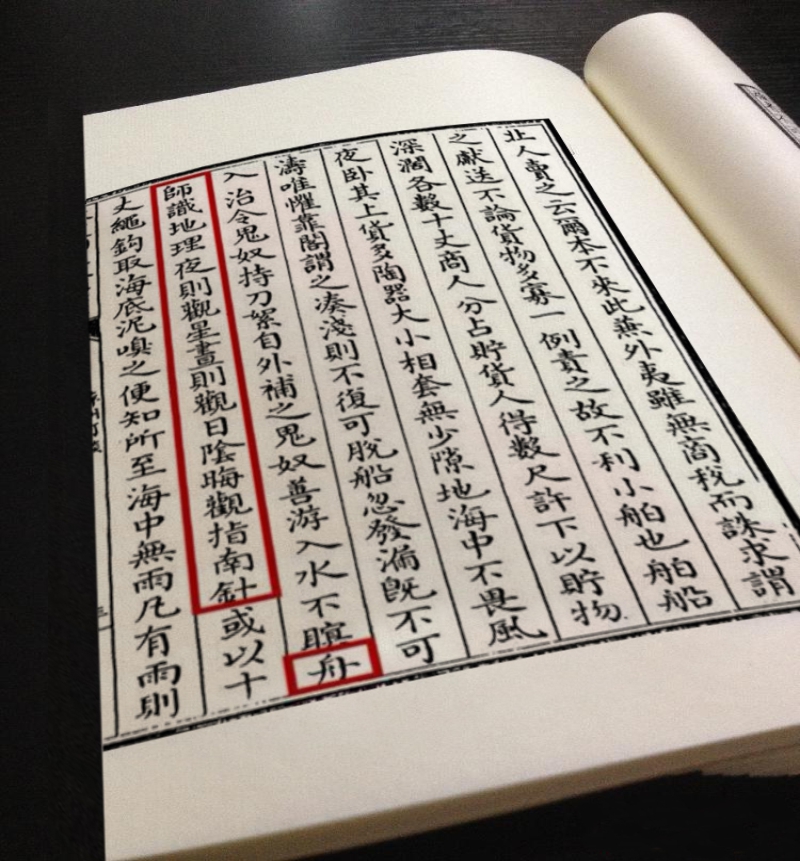 北人賣之云爾本不來此蕪外夷雖無商稅而誅求謂
之獻送不論貨物多寡一例責之故不利小舶也舶船
深濶各數十丈商人分占貯貨人得數尺許下以貯物
夜卧其上貨多陶器大小相套無少隙地海中不畏風
濤唯懼靠閣謂之凑淺則不復可脫船忽發漏既不可
入治令鬼奴持刀絮自外補之鬼奴善游入水不瞑舟
師識地理夜則觀星晝則觀日陰晦觀指南針或以十
丈繩鉤取海底泥嗅之便知所至海中無雨凡有雨則